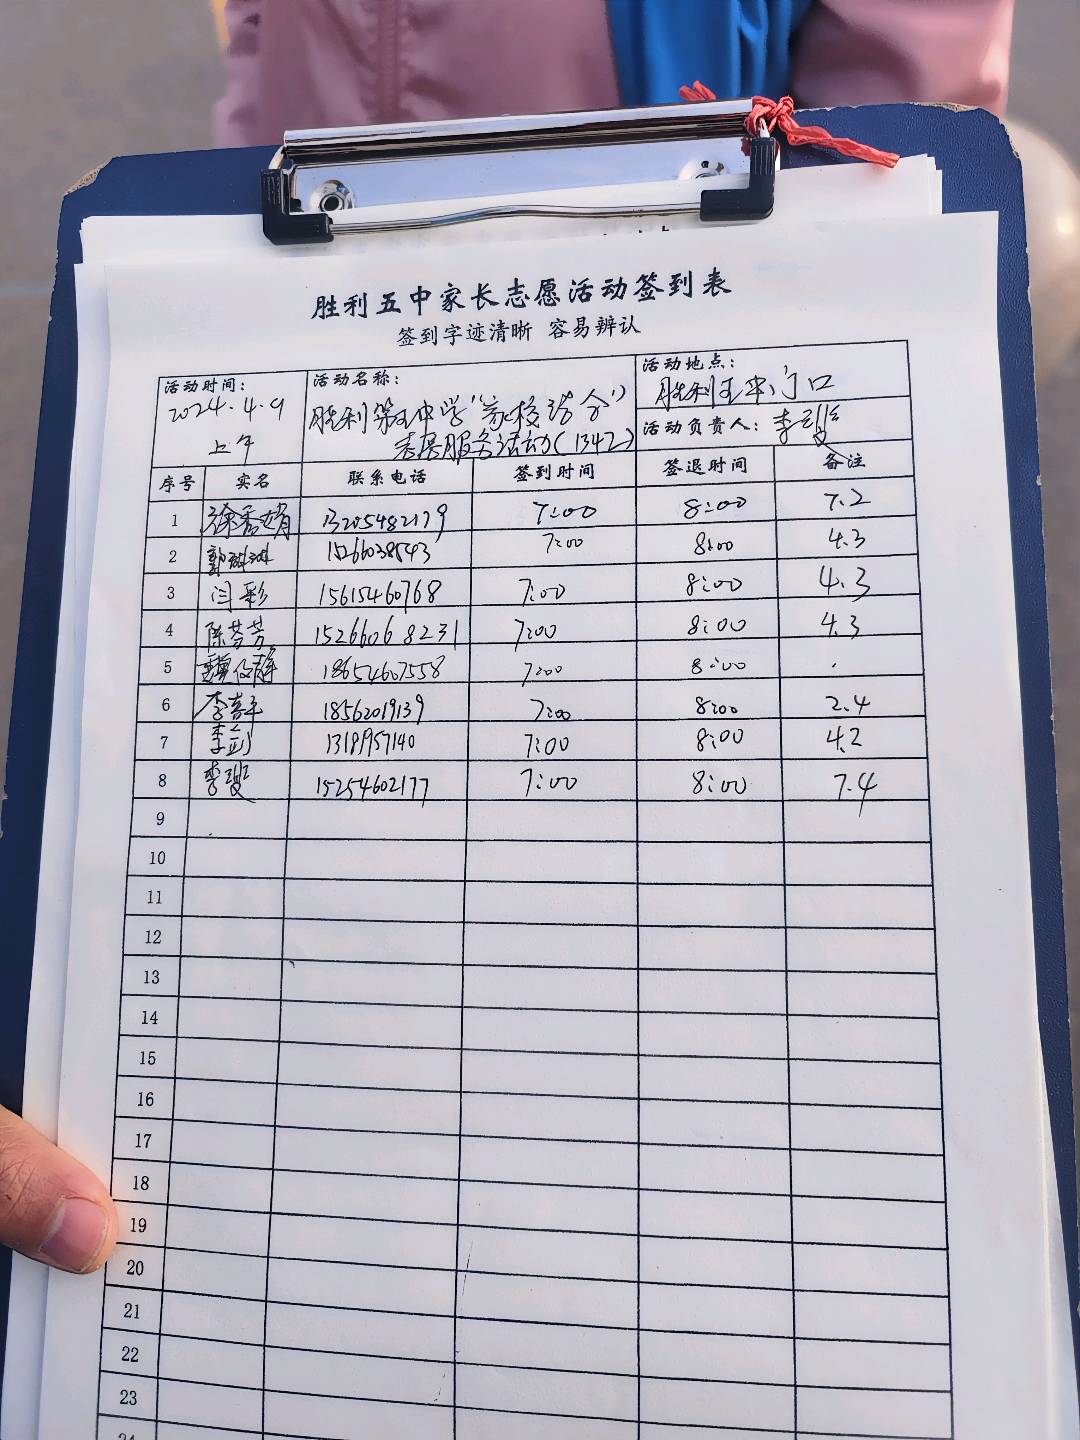 胜利五中家长志愿活动签到表
签到字迹清晰 容易辨认
活动时间：
2024.4.9
上午
活动名称：
胜利第五中学“家校
志愿服务活动(1342)
活动地点：
胜利五中门口
活动负责人：李
序号 实名 联系电话 签到时间 签退时间 备注
1 徐秀娟 13205482179 7:00 8:00 7.2
2 郭琳琳 15266038543 7:00 8:00 4.3
3 闫彩 15615460768 7:00 8:00 4.3
4 陈芳芳 15266068231 7:00 8:00 4.3
5 18654607558 7:00 8:00
6 李春平 18562019139 7:00 8:00 2.4
7 李剑 13181957140 7:00 8:00 4.2
8 李 15254602177 7:00 8:00 7.4
9
10
11
12
13
14
15
16
17
18
19
20
21
22
23
24